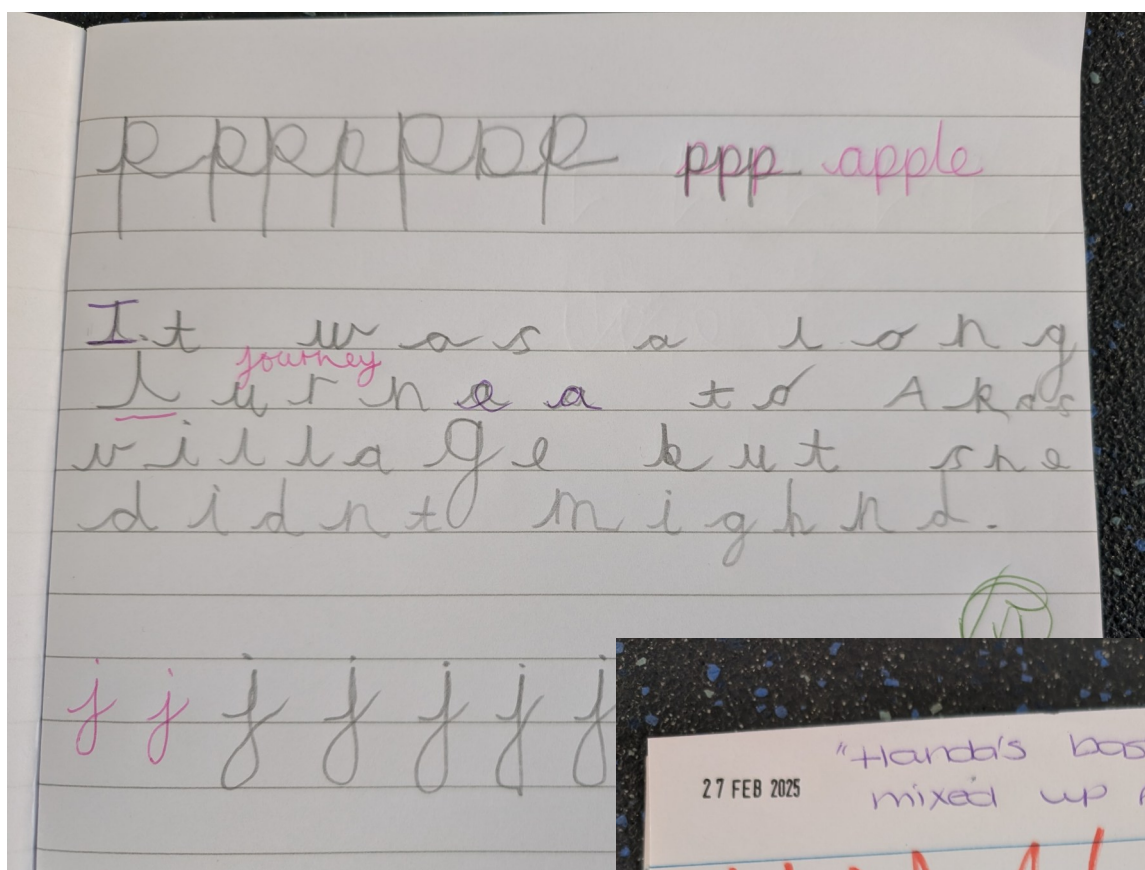 p p p p p p p ppp apple
It was a long
journey
lurnea to Akas
village but she
didnt mighnd.
j j j j j j j
27 FEB 2025
"Handa's bas
mixed up